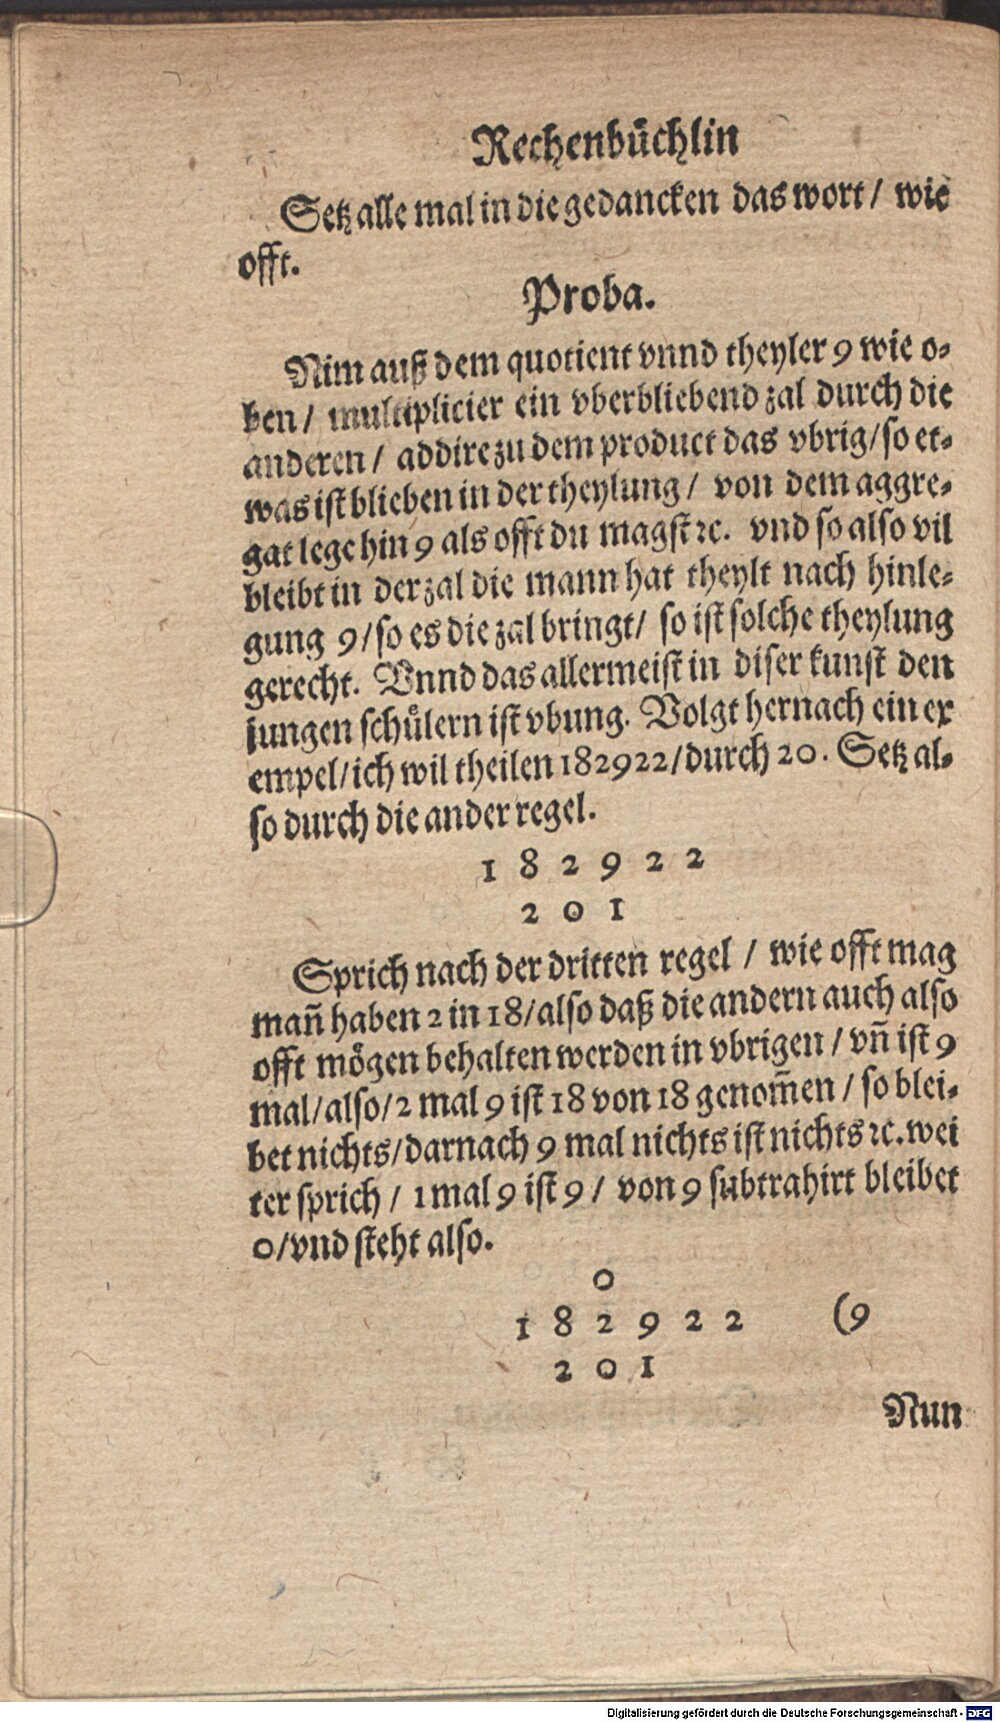 Rechenbüchlin
Setz alle mal in die gedancken das wort/ wie
offt.
Proba.
Nim auß dem quotient vnnd theyler 9 wie o⸗
ben/ multiplicier ein vberbliebend zal durch die
anderen/ addire zu dem product das vbrig/ so et⸗
was ist blieben in der theylung/ von dem aggre⸗
gat lege hin 9 als offt du magst ꝛc. vnd so also vil
bleibt in der zal die mann hat theylt nach hinle⸗
gung 9/ so es die zal bringt/ so ist solche theylung
gerecht. Vnnd das allermeist in diser kunst den
jungen schuͤlern ist vbung. Volgt hernach ein ex
empel/ ich wil theilen 182922/ durch 20. Setz al⸗
so durch die ander regel.
1 8 2 9 2 2
2 0 1
Sprich nach der dritten regel / wie offt mag
mañ haben 2 in 18/ also daß die andern auch also
offt moͤgen behalten werden in vbrigen / vñ ist 9
mal/ also/ 2 mal 9 ist 18 von 18 genom̃en / so blei⸗
bet nichts/ darnach 9 mal nichts ist nichts ꝛc. wei
ter sprich / 1 mal 9 ist 9/ von 9 subtrahirt bleibet
0/ vnd steht also.
0
1 8 2 9 2 2 (9
2 0 1
Nun
Digitalisierung gefördert durch die Deutsche Forschungsgemeinschaft - DFG